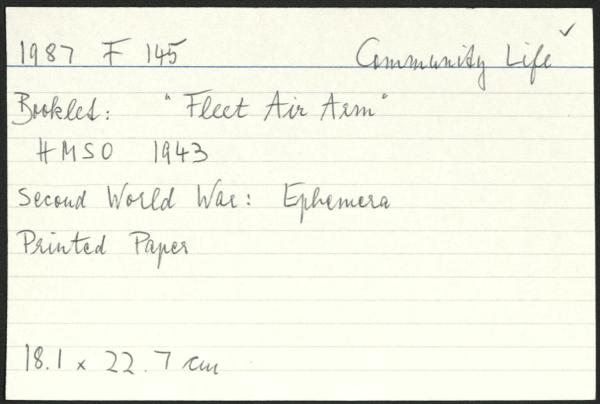 1987 F 145 Community Life ✓
Booklet: "Fleet Air Arm"
HMSO 1943
Second World War: Ephemera
Printed Paper
18.1 x 22.7 cm